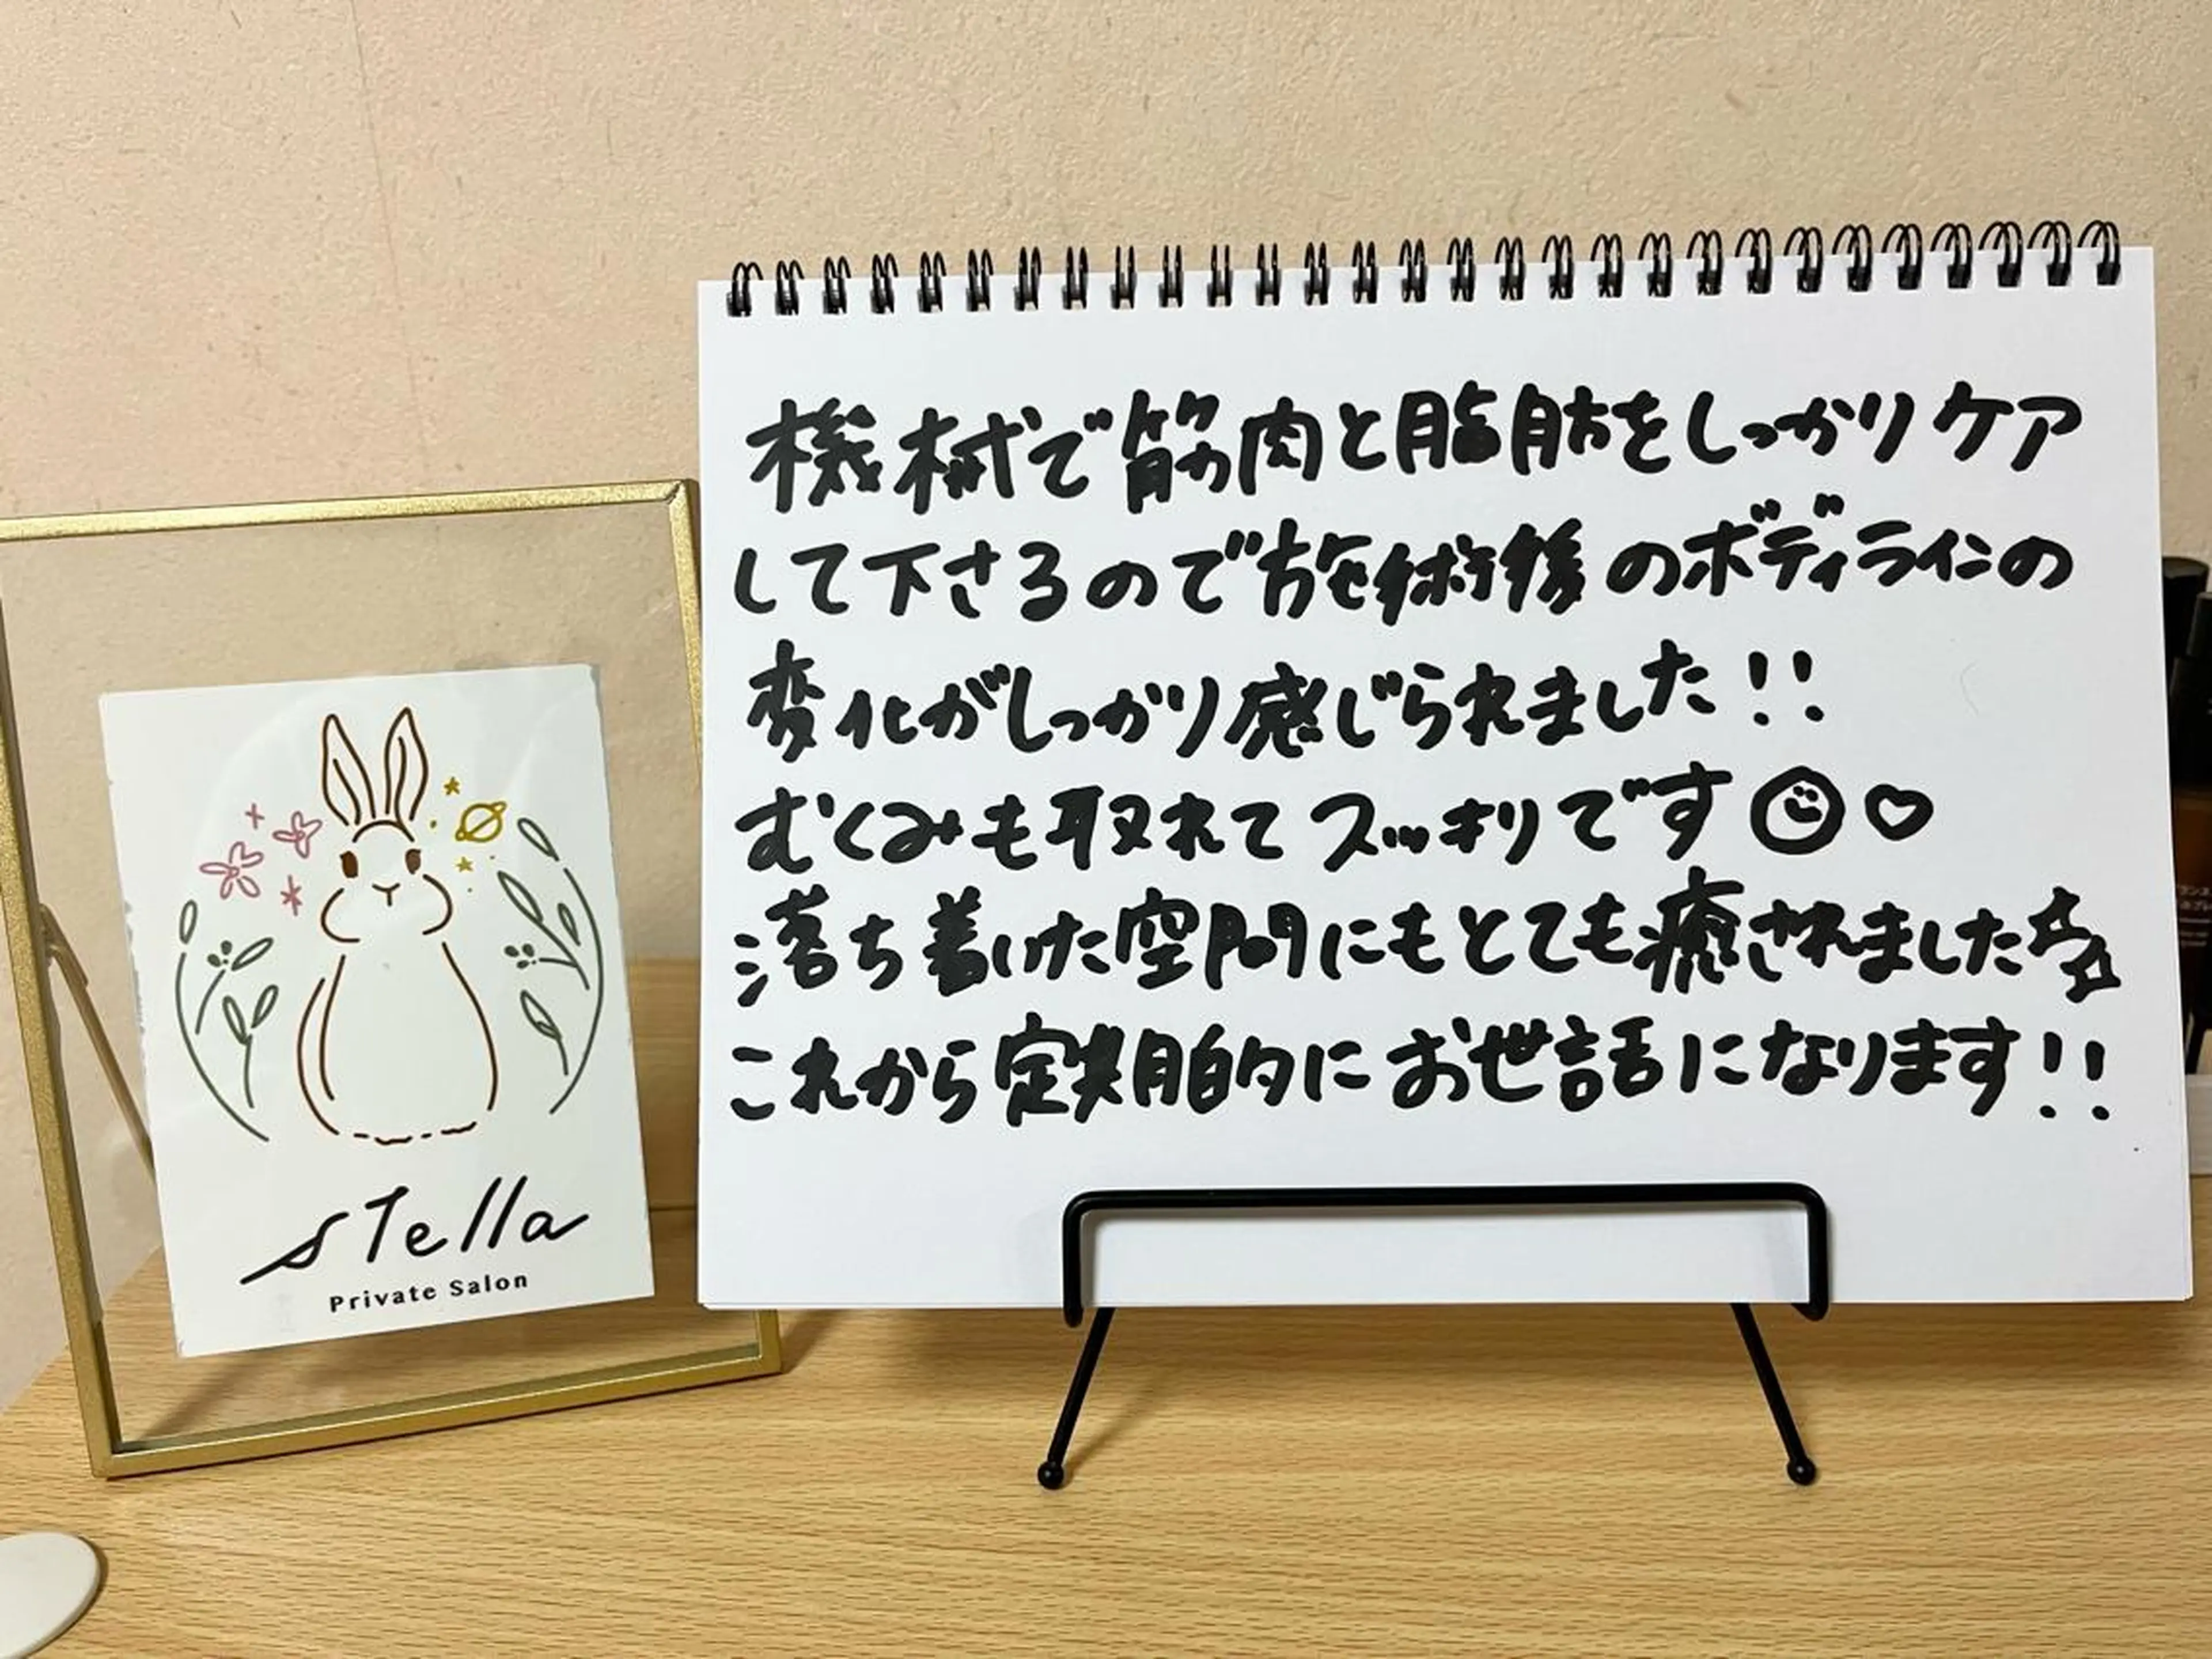 stella
Private Salon
機械で筋肉と脂肪をしっかりケア
して下さるので施術後のボディラインの
変化がしっかり感じられました!!
むくみも取れてスッキリです
落ち着いた空間にもとても癒されました
これから定期的にお世話になります!!